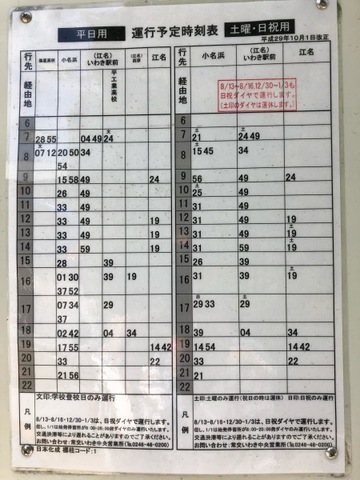 平日用 運行予定時刻表 土曜・日祝用
平成29年10月1日改正
行先 小名浜 (江名)いわき駅前 平工業高校 江名 行先 小名浜 (江名)いわき駅前 江名
経由地 経由地
8/13~8/16.12/30~1/3も
日祝ダイヤで運行します。
(土印のダイヤは運休します。)
6 6
7 28 55 04 49 24 7 21 24 49
8 07 12 20 50 34 8 15 45 34
54
9 15 58 49 24 9 56 49 24
10 26 49 10 26 49
11 33 49 11 31 49
12 33 49 19 12 31 49 19
13 33 49 19 13 31 49 19
14 33 59 19 14 31 59 19
15 28 39 15 26 39
16 01 30 39 19 16 31 39 19
37 52
17 07 34 29 17 29 33 29
57
18 02 42 04 34 18 34 04
19 17 55 14 42 19 54 14 42
20 33 22 20 22
21 21 56 21
22 22
文印:学校登校日のみ運行 土印:土曜のみ運行(祝日の時は運休) 日印:日祝のみ運行
凡例 凡例
8/13~8/16・12/30~1/3は、日祝ダイヤで運行します。 8/13~8/16・12/30~1/3は、日祝ダイヤで運行します。
交通渋滞等により遅れることがありますのでご了承ください。 交通渋滞等により遅れることがありますのでご了承ください。
お問い合わせ:常交いわき中央営業所(☎0246-46-0200) お問い合わせ:常交いわき中央営業所(☎0246-46-0200)
日本化成 標柱コード:1